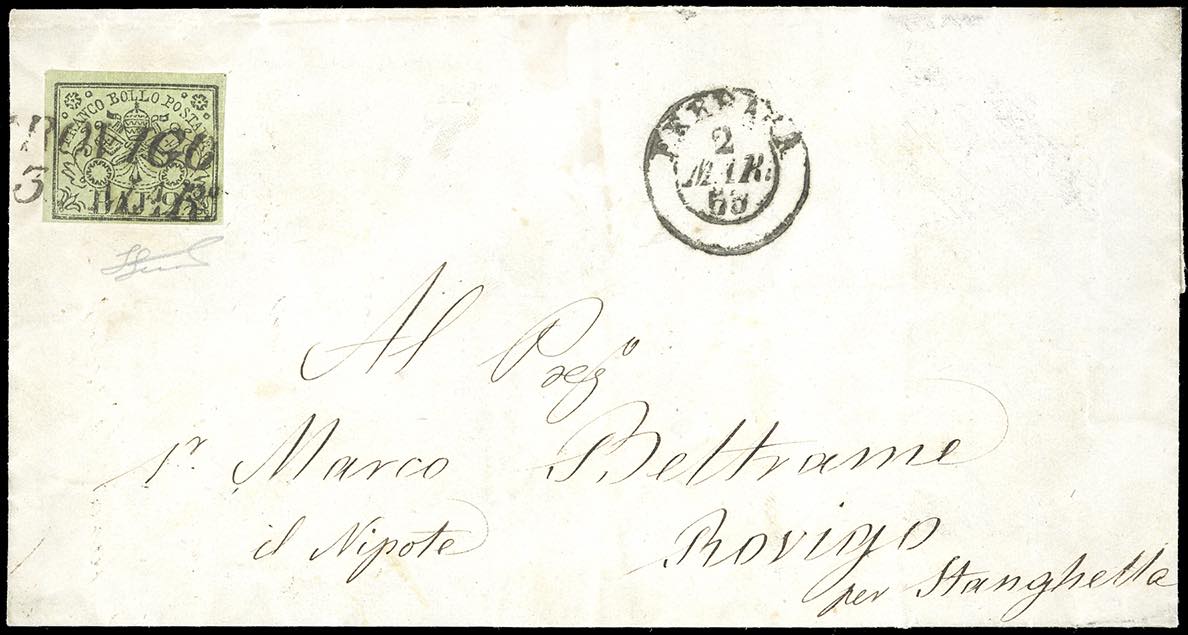 FRANCO BOLLO POSTALE
ROVIGO
3
MAR.
FERRARA
2
MAR.
55
Al Preg°
Sr. Marco Beltrame
il Nipote
Rovigo
per Stanghella